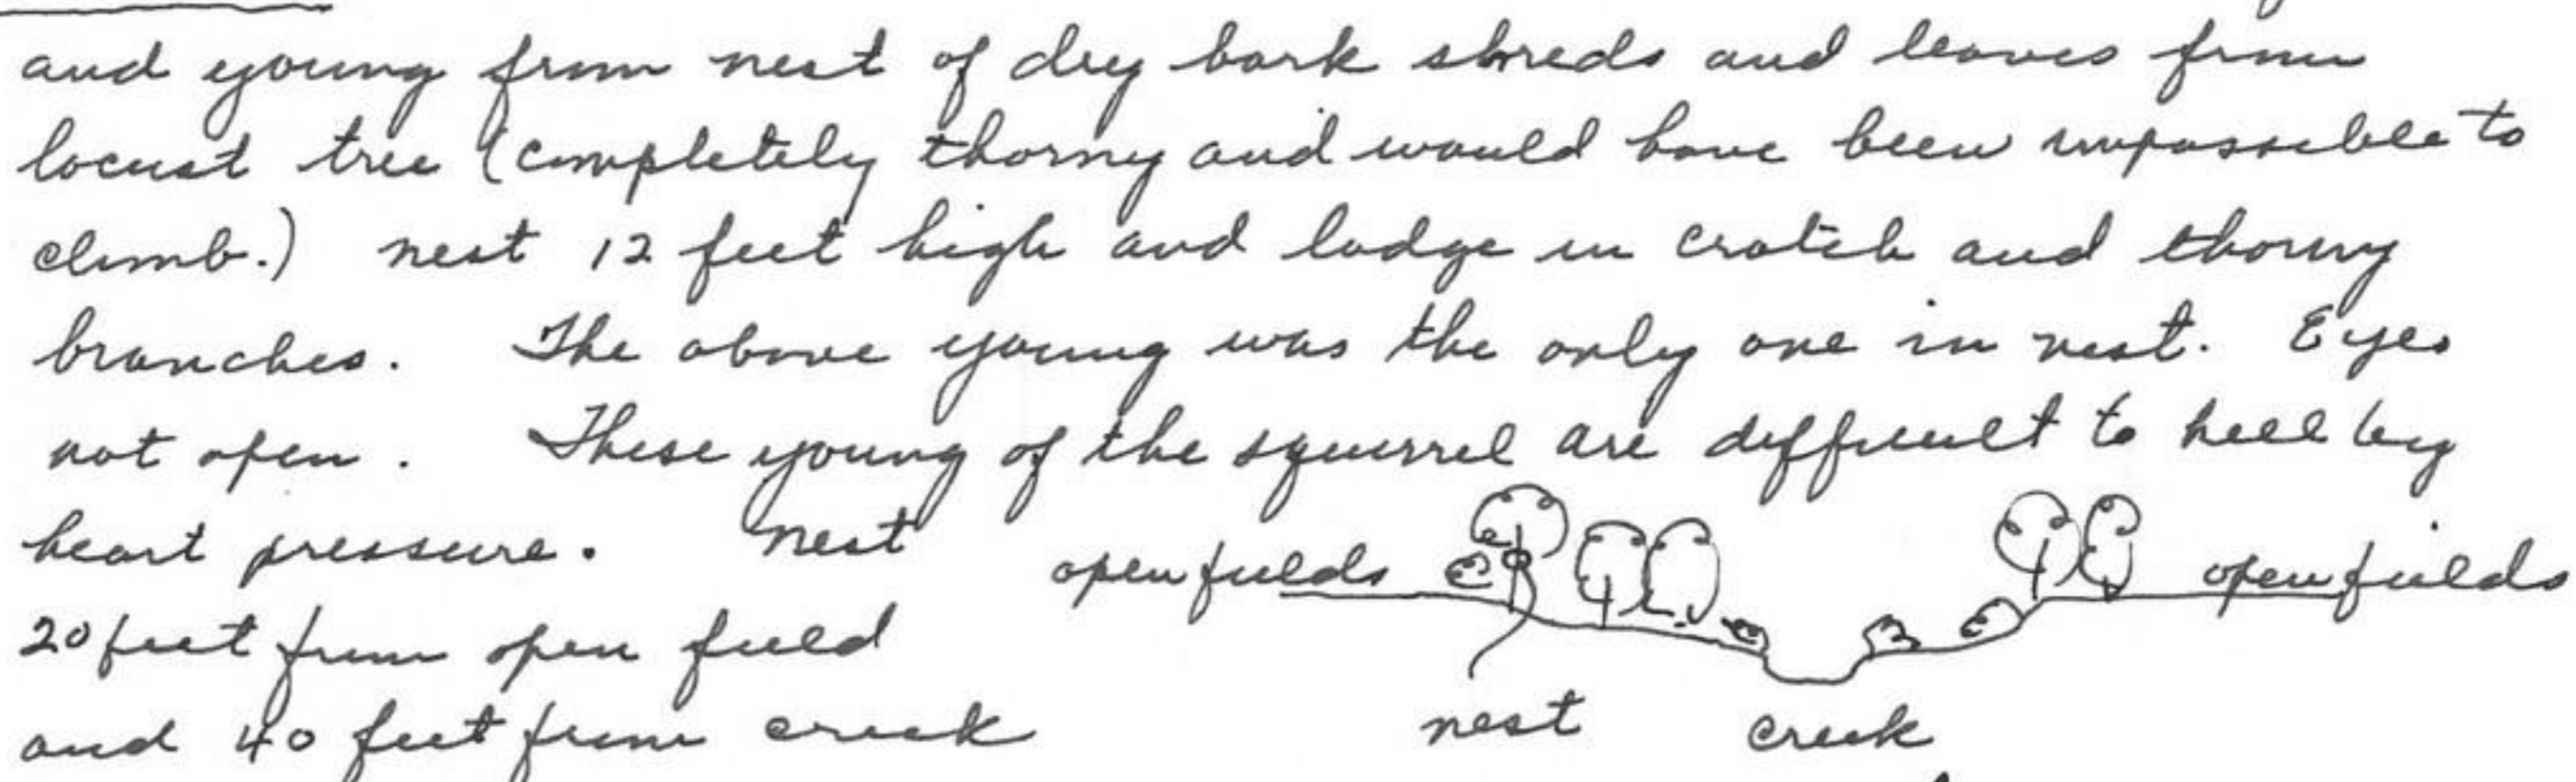 and young from nest of dry bark shreds and leaves from
locust tree (completely thorny and would have been impossible to
climb.) nest 12 feet high and lodge in crotch and thorny
branches. The above young was the only one in nest. Eyes
not open. These young of the squirrel are difficult to kill by
heart pressure. nest
open fields open fields
20 feet from open field
and 40 feet from creek
nest creek